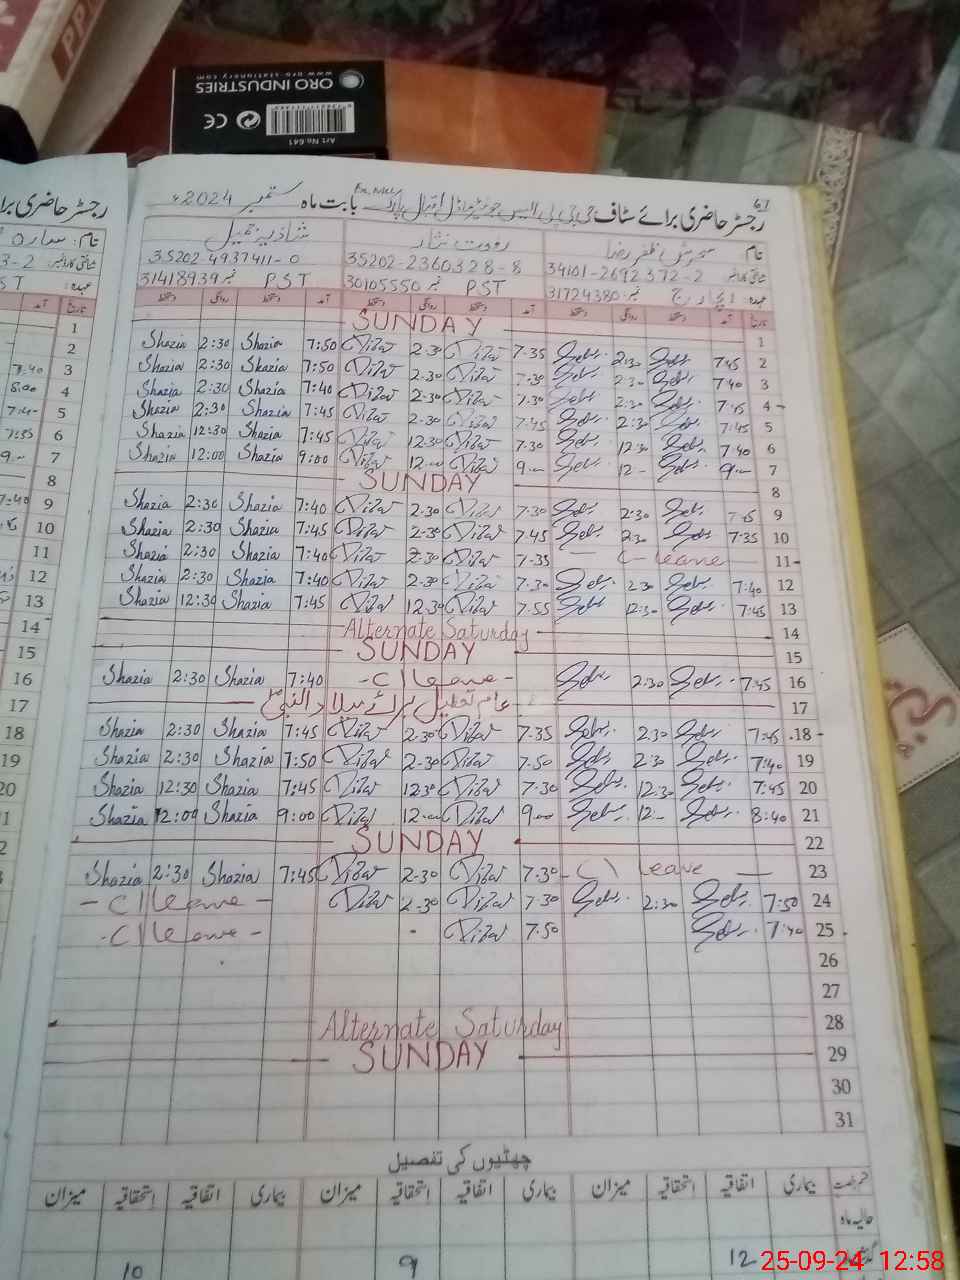 PP
ORO INDUSTRIES
www.oro-stationery.com
Art No.641
CE
61
رجسٹر حاضری برائے سٹاف جی جی پی ایس جونیئر ماڈل اقبال پارک بابت ماہ ستمبر 2024ء
رجسٹر حاضری برا
نام سحرش ظفر رضا رفعت نثار شازیہ جمیل
شناختی کارڈ نمبر 34101-2692372-2 35202-2360328-8 35202-4937411-0
عہدہ: انچارج نمبر 31724380 PST نمبر 30105550 PST نمبر 31418939
تاریخ آمد دستخط روانگی دستخط آمد دستخط روانگی دستخط آمد دستخط روانگی دستخط
1 SUNDAY
Shazia 2:30 Shazia 7:50 2.30 7.35 2:30 7:45 2
Shazia 2:30 Shazia 7:50 2.30 7:30 2:30 7:40 3
Shazia 2:30 Shazia 7:40 2.30 7.30 2:30 7:45 4
Shazia 2:30 Shazia 7:45 2.30 7.45 2:30 7:45 5
Shazia 12:30 Shazia 7:45 12.30 7.30 12:30 7:40 6
Shazia 12:00 Shazia 9:00 12.00 9.00 12- 9.00 7
SUNDAY 8
Shazia 2:30 Shazia 7:40 2.30 7.30 2:30 7:45 9
Shazia 2:30 Shazia 7:45 2.30 7.45 2:30 7:35 10
Shazia 2:30 Shazia 7:40 2.30 7.35 C-leave 11
Shazia 2:30 Shazia 7:40 2.30 7.30 2:30 7:40 12
Shazia 12:30 Shazia 7:45 12.30 7.55 12:30 7:45 13
Alternate Saturday 14
SUNDAY 15
Shazia 2:30 Shazia 7:40 - C\leave - 2:30 7:45 16
عام تعطیل برائے میلاد النبیؐ 17
Shazia 2:30 Shazia 7:45 2.30 7.35 2:30 7:45 18
Shazia 2:30 Shazia 7:50 2.30 7.50 2:30 7:40 19
Shazia 12:30 Shazia 7:45 12.30 7.30 12:30 7:45 20
Shazia 12:00 Shazia 9:00 12.00 9.00 12- 8:40 21
SUNDAY 22
Shazia 2:30 Shazia 7:45 2.30 7.30 - C\ leave - 23
- C\leave - 2.30 7.30 2:30 7:50 24
- C\leave - 7.50 7:40 25
26
27
Alternate Saturday 28
SUNDAY 29
30
31
چھٹیوں کی تفصیل
قسم رخصت بیماری اتفاقیہ استحقاقیہ میزان بیماری اتفاقیہ استحقاقیہ میزان بیماری اتفاقیہ استحقاقیہ میزان
حالیہ ماہ
12 9 10
25-09-24 12:58